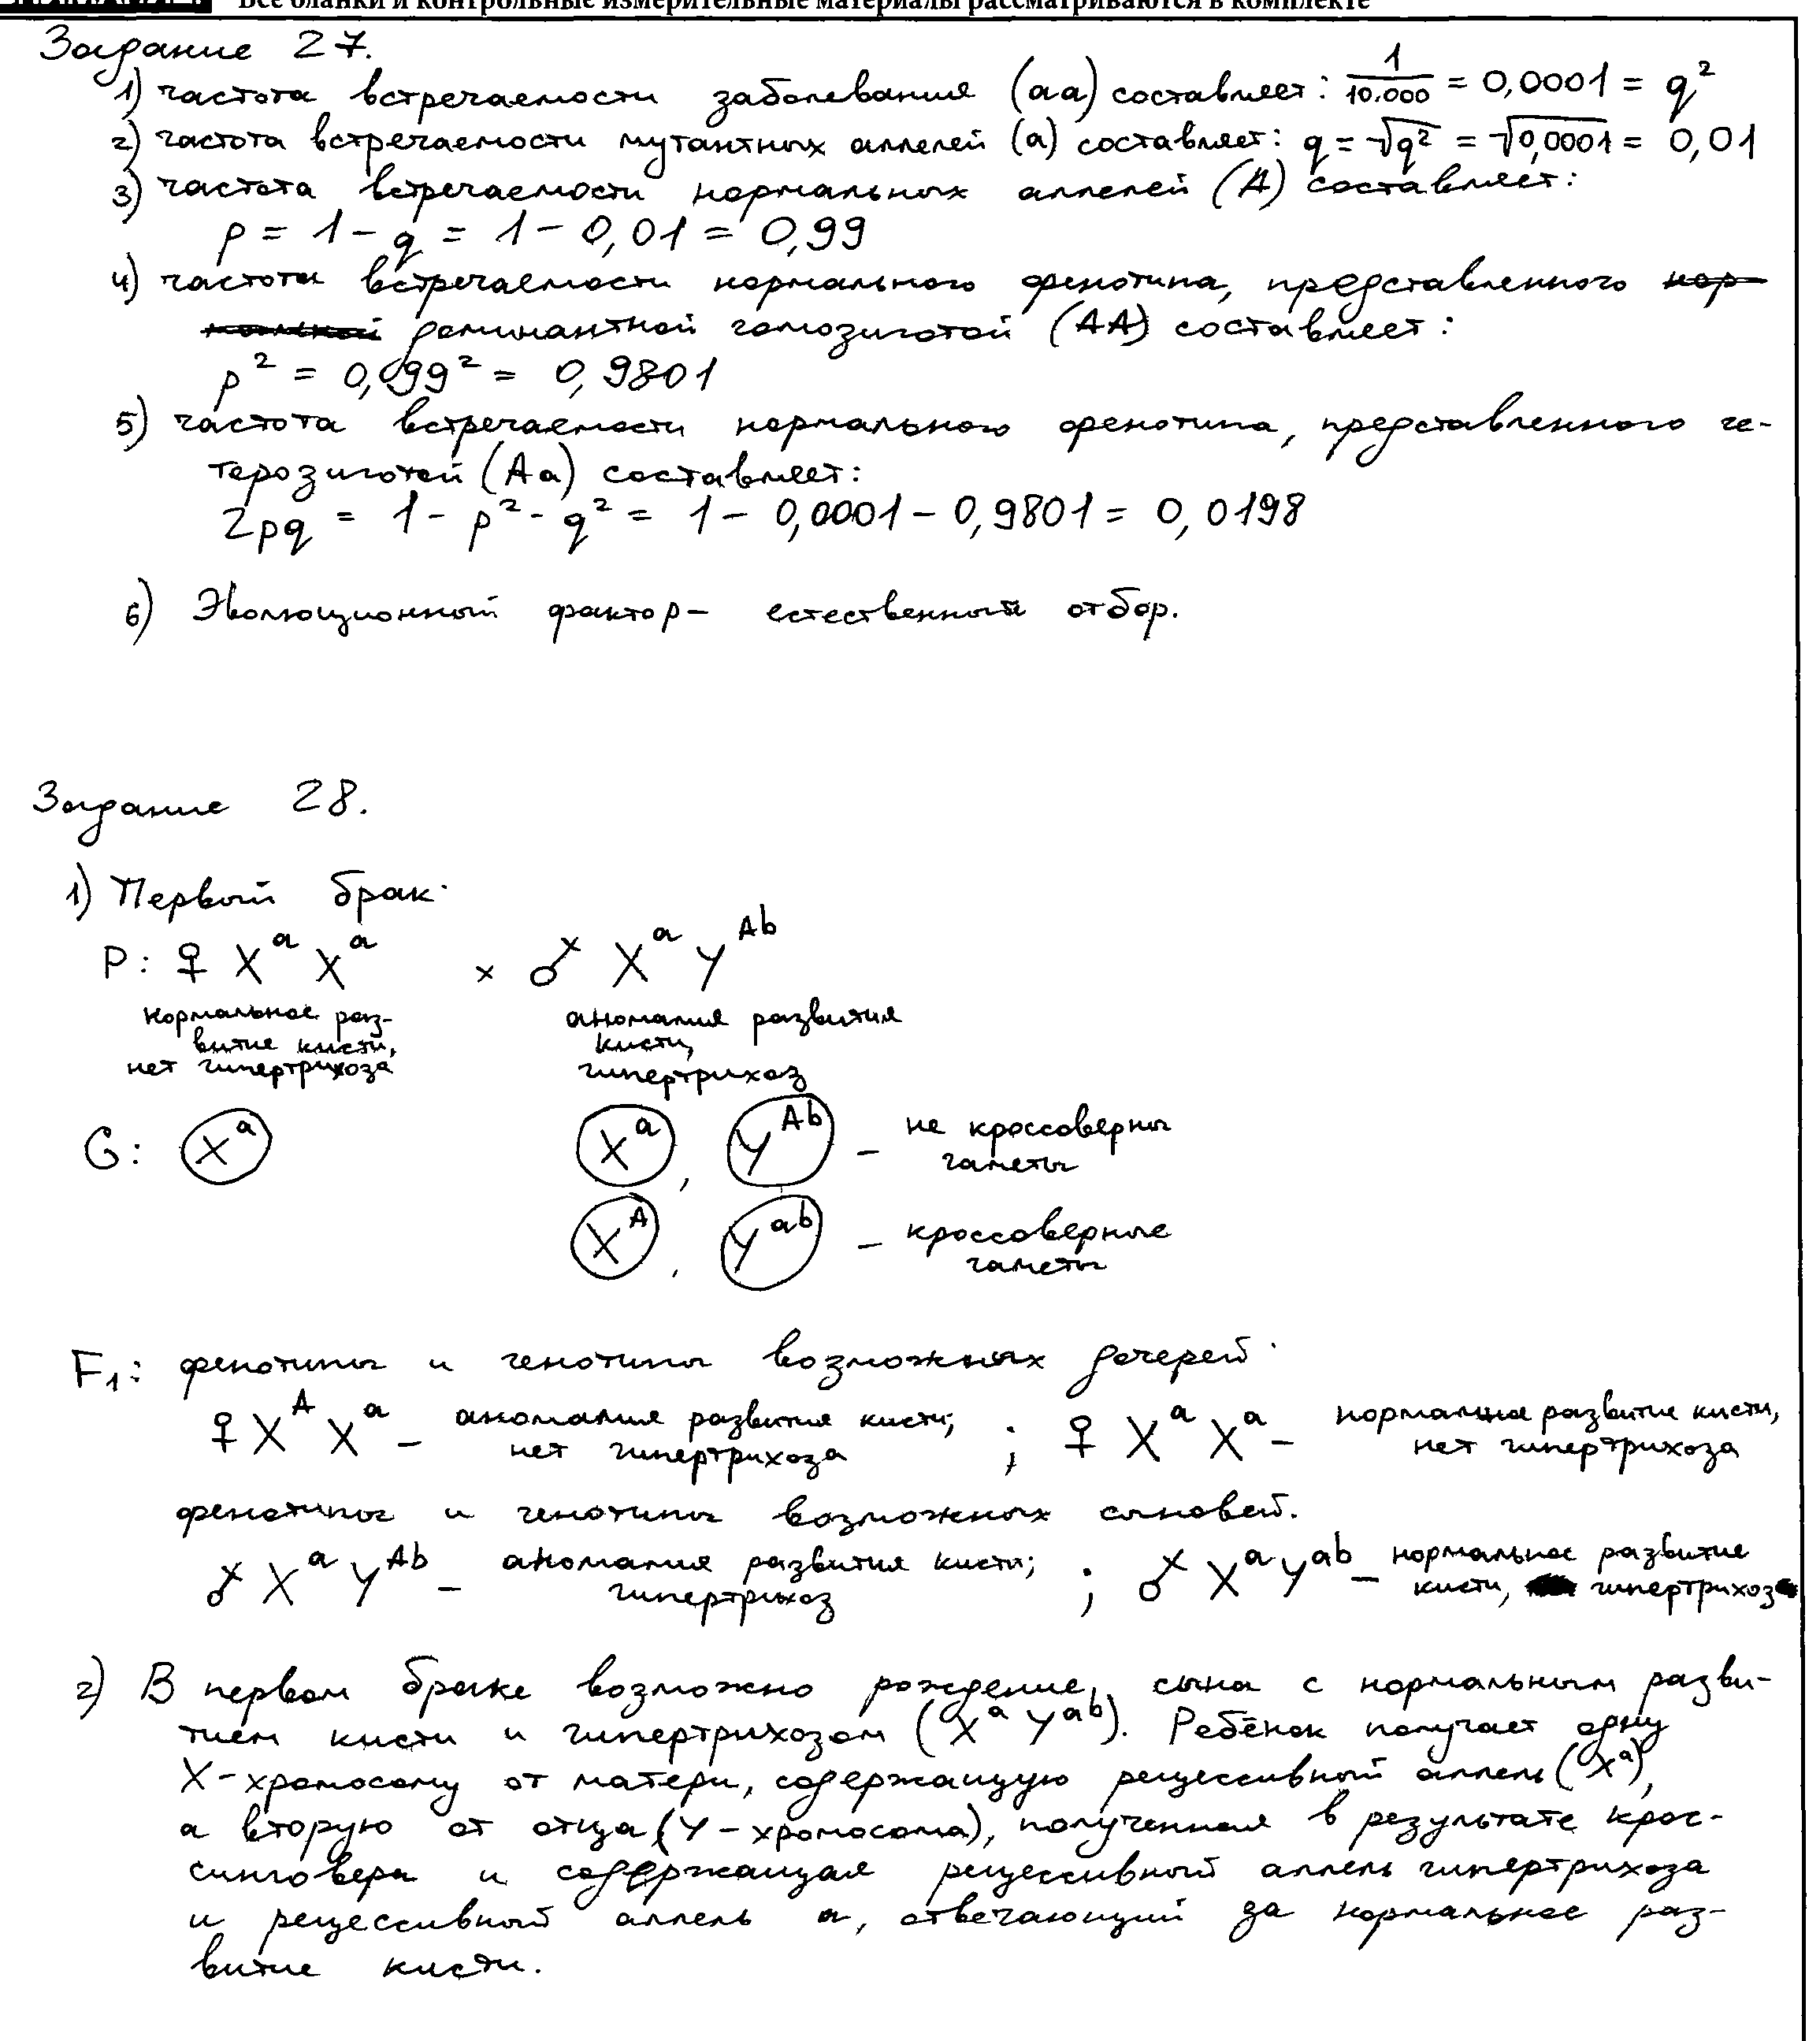 Все бланки и контрольные измерительные материалы рассматриваются в комплекте
Задание 27.
1) частота встречаемости заболевания (aa) составляет: 1/10.000 = 0,0001 = q²
2) частота встречаемости мутантных аллелей (a) составляет: q = √q² = √0,0001 = 0,01
3) частота встречаемости нормальных аллелей (A) составляет:
p = 1 - q = 1 - 0,01 = 0,99
4) частота встречаемости нормального фенотипа, представленного
доминантной гомозиготой (AA) составляет:
p² = 0,99² = 0,9801
5) частота встречаемости нормального фенотипа, представленного ге-
терозиготой (Aa) составляет:
2pq = 1 - p² - q² = 1 - 0,0001 - 0,9801 = 0,0198
6) Эволюционный фактор- естественный отбор.
Задание 28.
1) Первый брак:
P: ♀ XᵃXᵃ × ♂ XᵃYᴬᵇ
нормальное раз- аномалия развития
витие кисти, кисти,
нет гипертрихоза гипертрихоз
G: Xᵃ Xᵃ, Yᴬᵇ – не кроссоверны
гаметы
Xᴬ, Yᵃᵇ – кроссоверные
гаметы
F₁: фенотипы и генотипы возможных дочерей:
♀ XᴬXᵃ – аномалия развития кисти; ; ♀ XᵃXᵃ – нормальное развитие кисти,
нет гипертрихоза нет гипертрихоза
фенотипы и генотипы возможных сыновей.
♂ XᵃYᴬᵇ – аномалия развития кисти; ; ♂ XᵃYᵃᵇ – нормальное развитие
гипертрихоз кисти, гипертрихоз
2) В первом браке возможно рождение, сына с нормальным разви-
тием кисти и гипертрихозом (XᵃYᵃᵇ). Ребёнок получает одну
X-хромосому от матери, содержащую рецессивный аллель (Xᵃ),
а вторую от отца (Y-хромосома), полученная в результате крос-
синговера и содержащая рецессивный аллель гипертрихоза
и рецессивный аллель a, отвечающий за нормальное раз-
витие кисти.